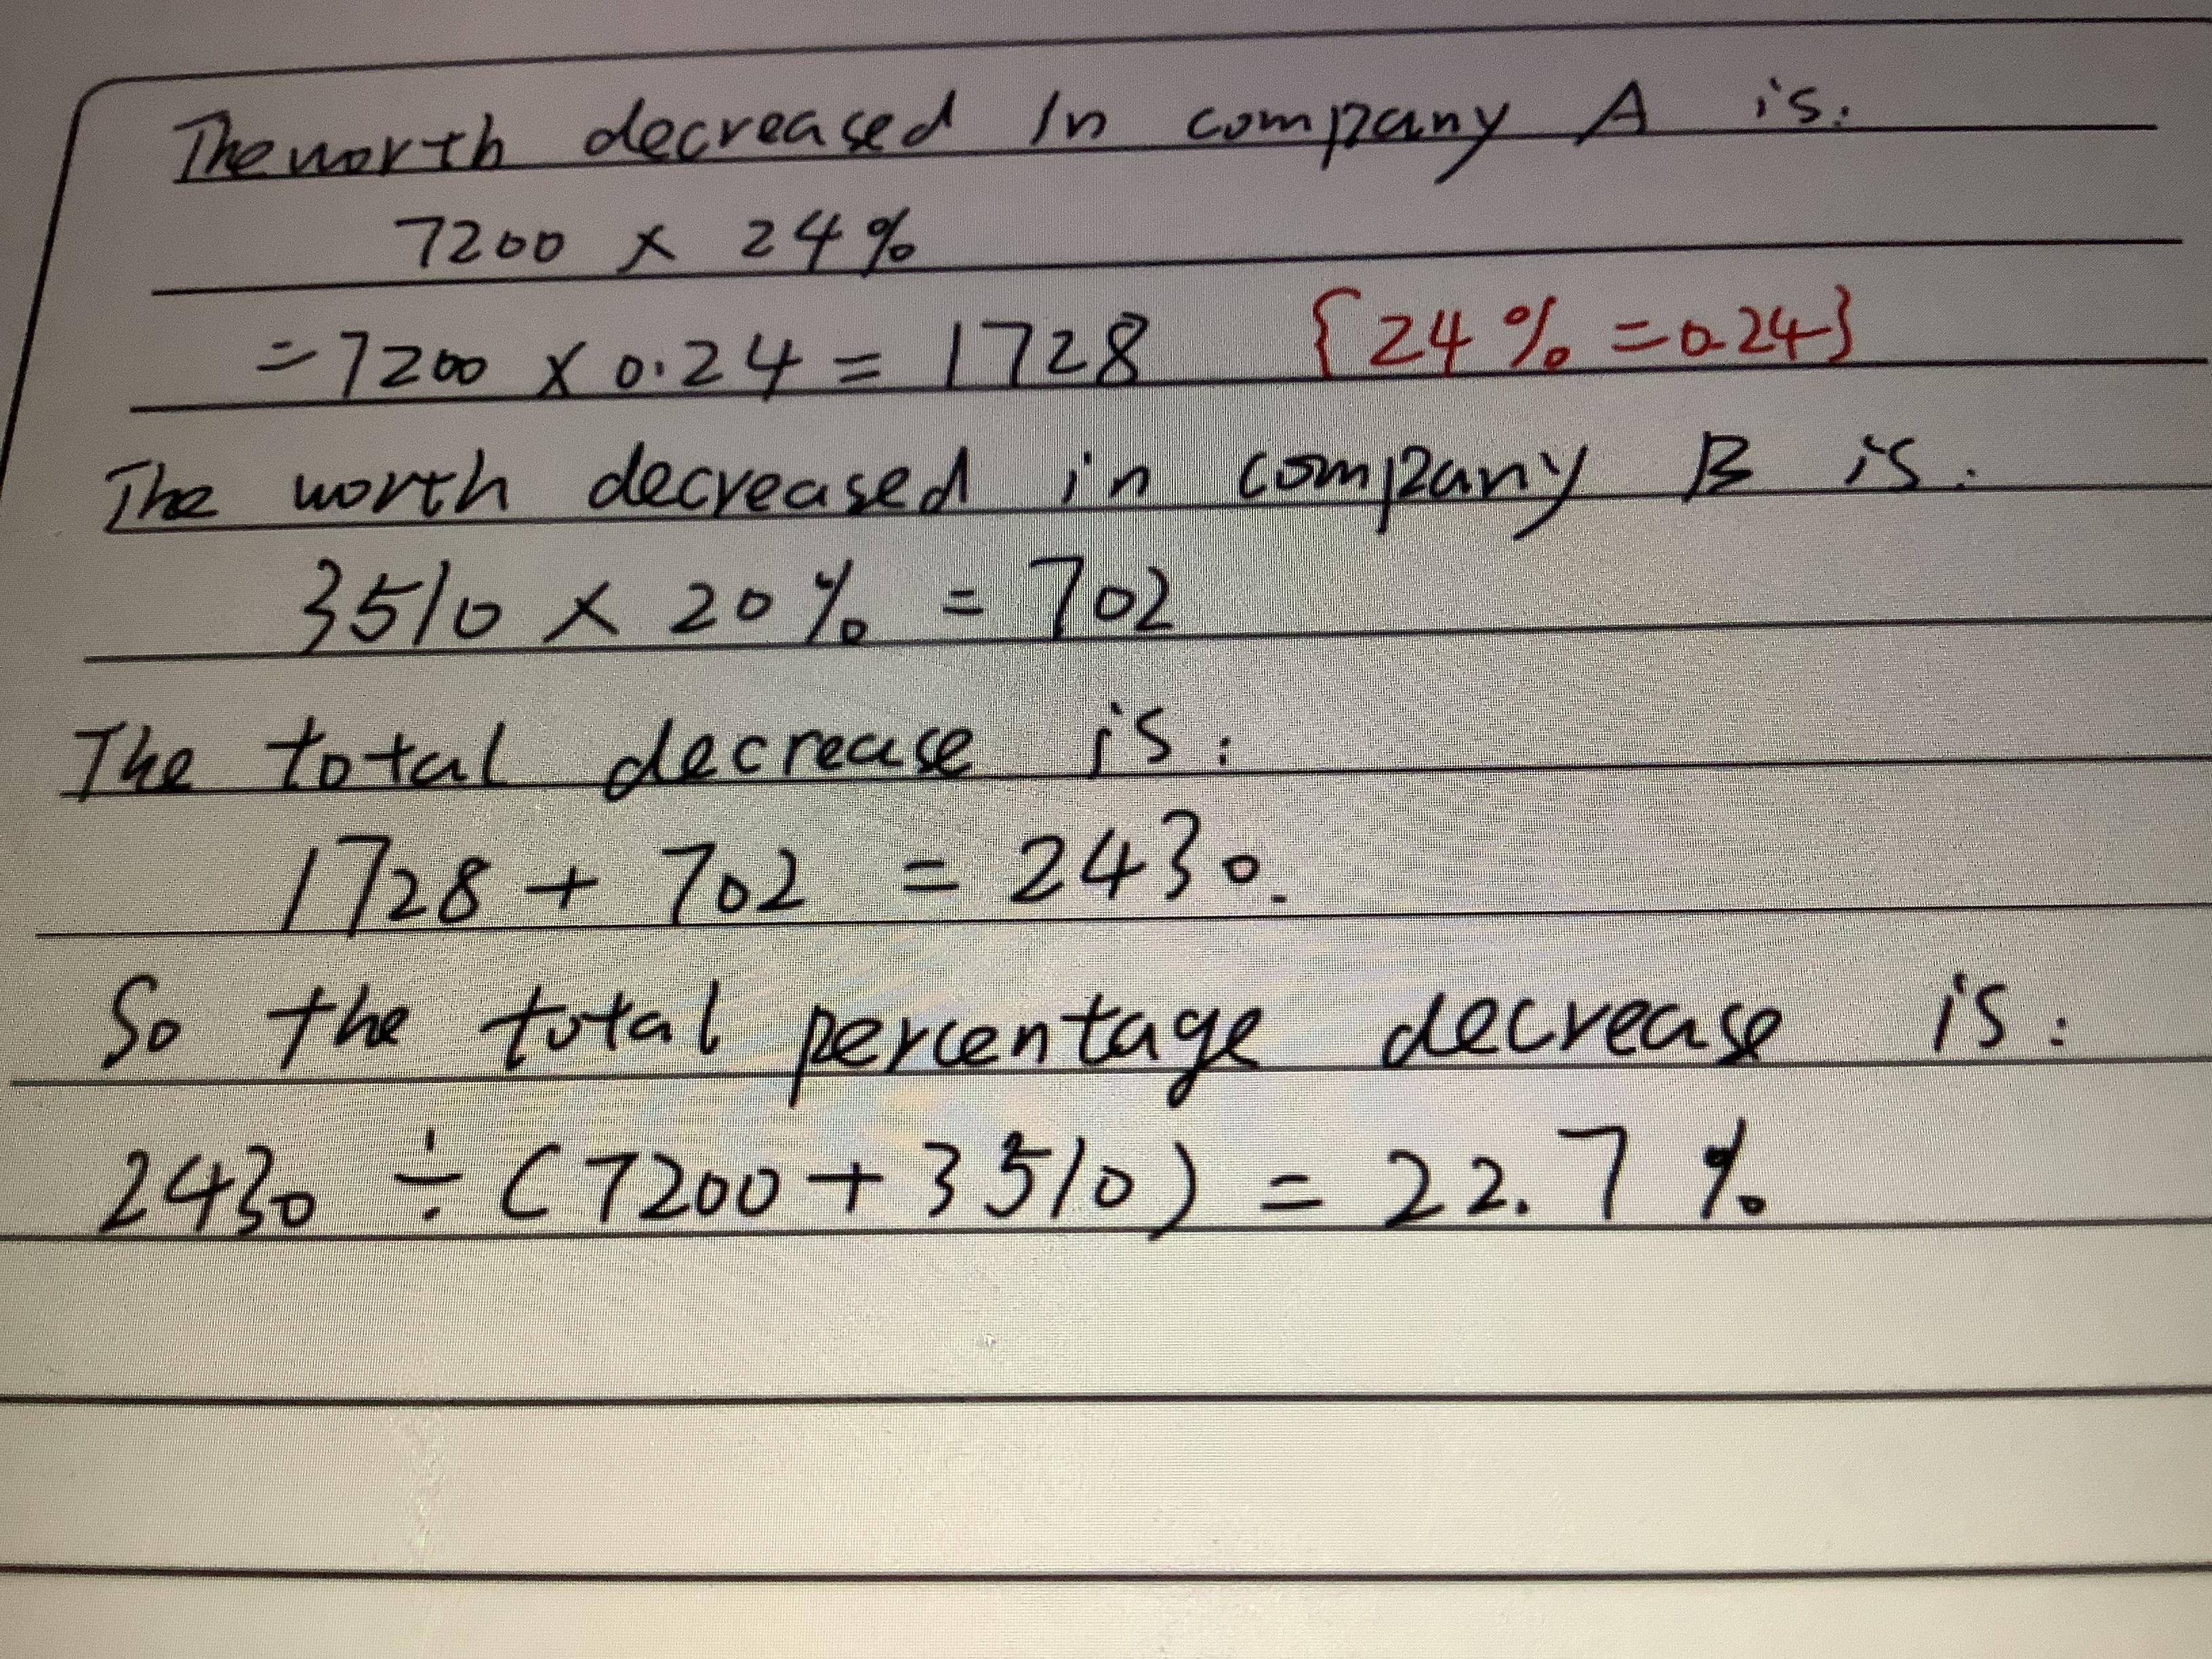 The worth decreased In company A is:
7200 × 24%
= 7200 × 0.24 = 1728 {24% = 0.24}
The worth decreased in company B is:
3510 × 20% = 702
The total decrease is:
1728 + 702 = 2430.
So the total percentage decrease is:
2430 ÷ (7200 + 3510) = 22.7%